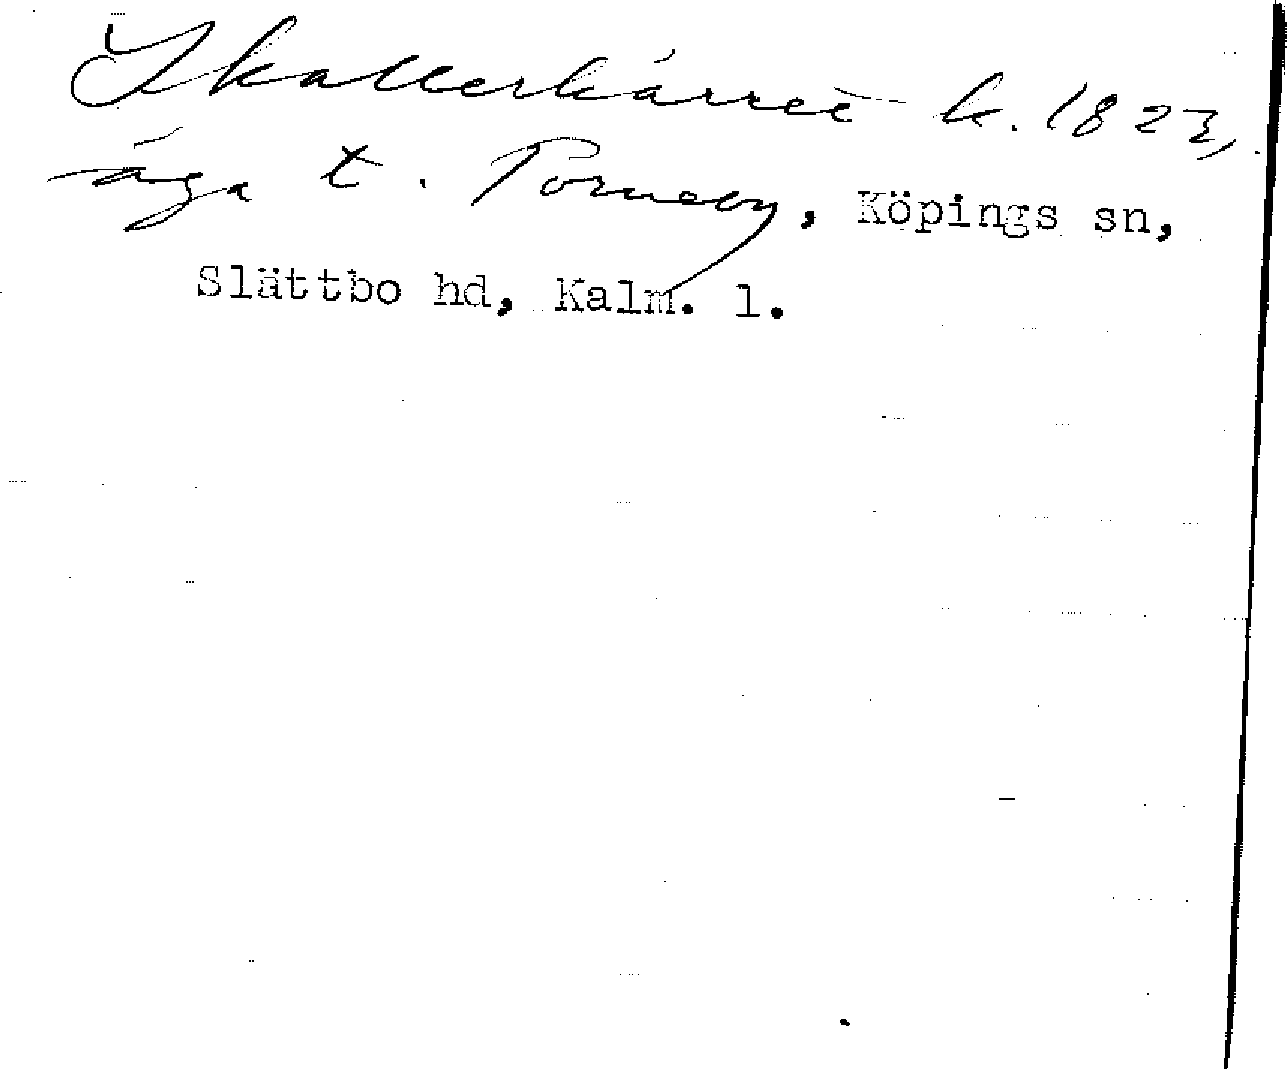 Skallerkärret k. 1823,
äga t. Torneby, Köpings sn,
Slättbo hd, Kalm. l.